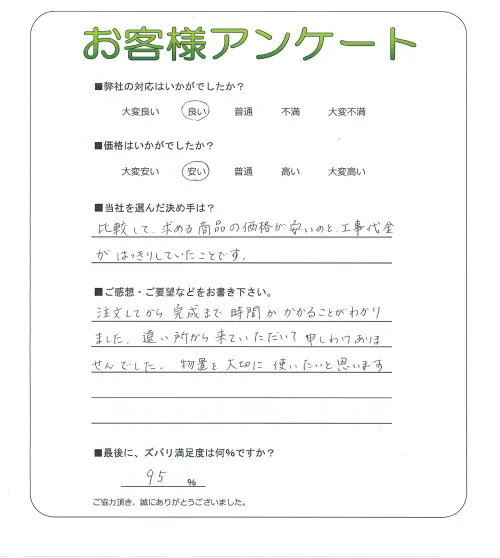 お客様アンケート
■弊社の対応はいかがでしたか？
大変良い 良い 普通 不満 大変不満
■価格はいかがでしたか？
大変安い 安い 普通 高い 大変高い
■当社を選んだ決め手は？
比較して、求める商品の価格が安いのと、工事代金
がはっきりしていたことです。
■ご感想・ご要望などをお書き下さい。
注文してから完成まで時間がかかることがわかり
ました。遠い所から来ていただいて申しわけありま
せんでした。物置を大切に使いたいと思います
■最後に、ズバリ満足度は何%ですか？
95 %
ご協力頂き、誠にありがとうございました。